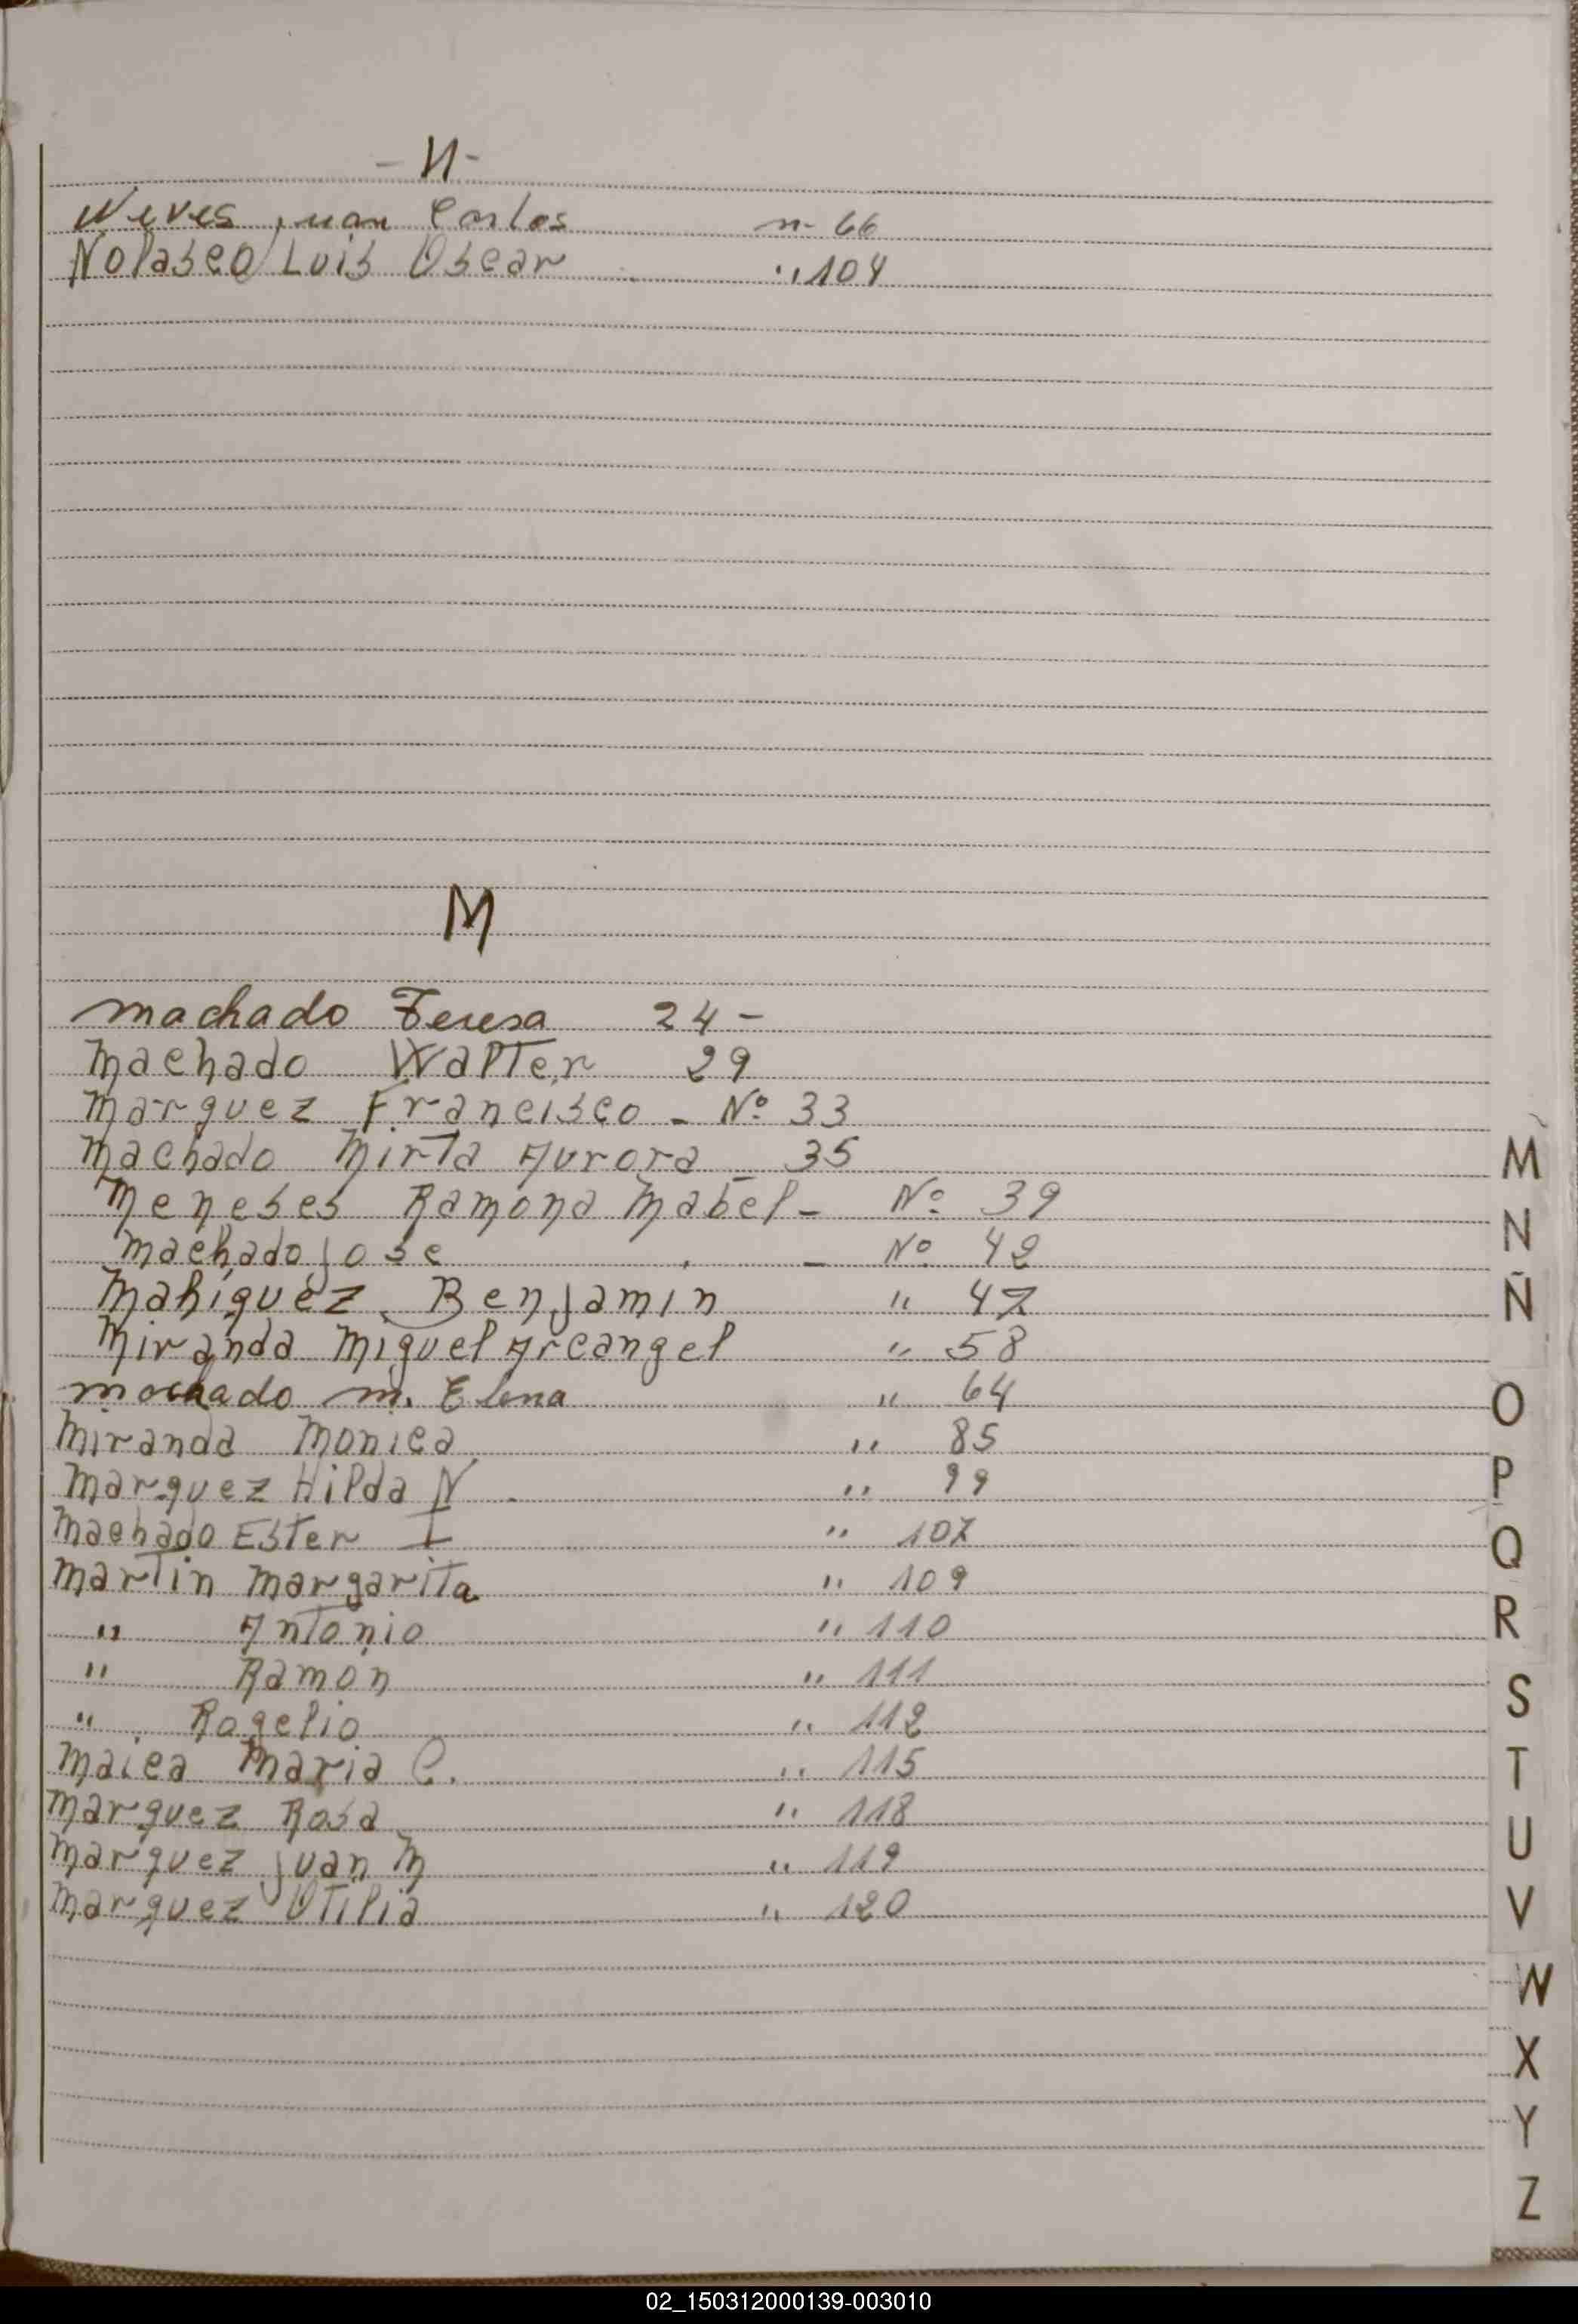 - N -
Neves Juan Carlos n- 66
Nolasco Luis Oscar " 104
M
machado Teresa 24 -
machado Walter 29
marquez Francisco - Nº 33
machado mirta Aurora 35
meneses Ramona mabel - Nº 39
machado jose - Nº 42
Mahiquez Benjamin " 47
Miranda miguel Arcangel " 58
machado m. Elena " 64
Miranda monica " 85
marquez Hilda N " 99
machado Ester I " 107
martin margarita " 109
" Antonio " 110
" Ramon " 111
" Rogelio " 112
maica maria C. " 115
marquez Rosa " 118
marquez juan M " 119
marquez Otilia " 120
M
N
Ñ
O
P
Q
R
S
T
U
V
W
X
Y
Z
02_150312000139-003010